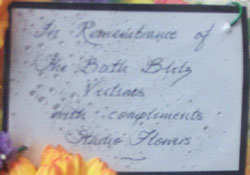 In Remembrance of
The Bath Blitz
Victims
with compliments
Studio Flowers